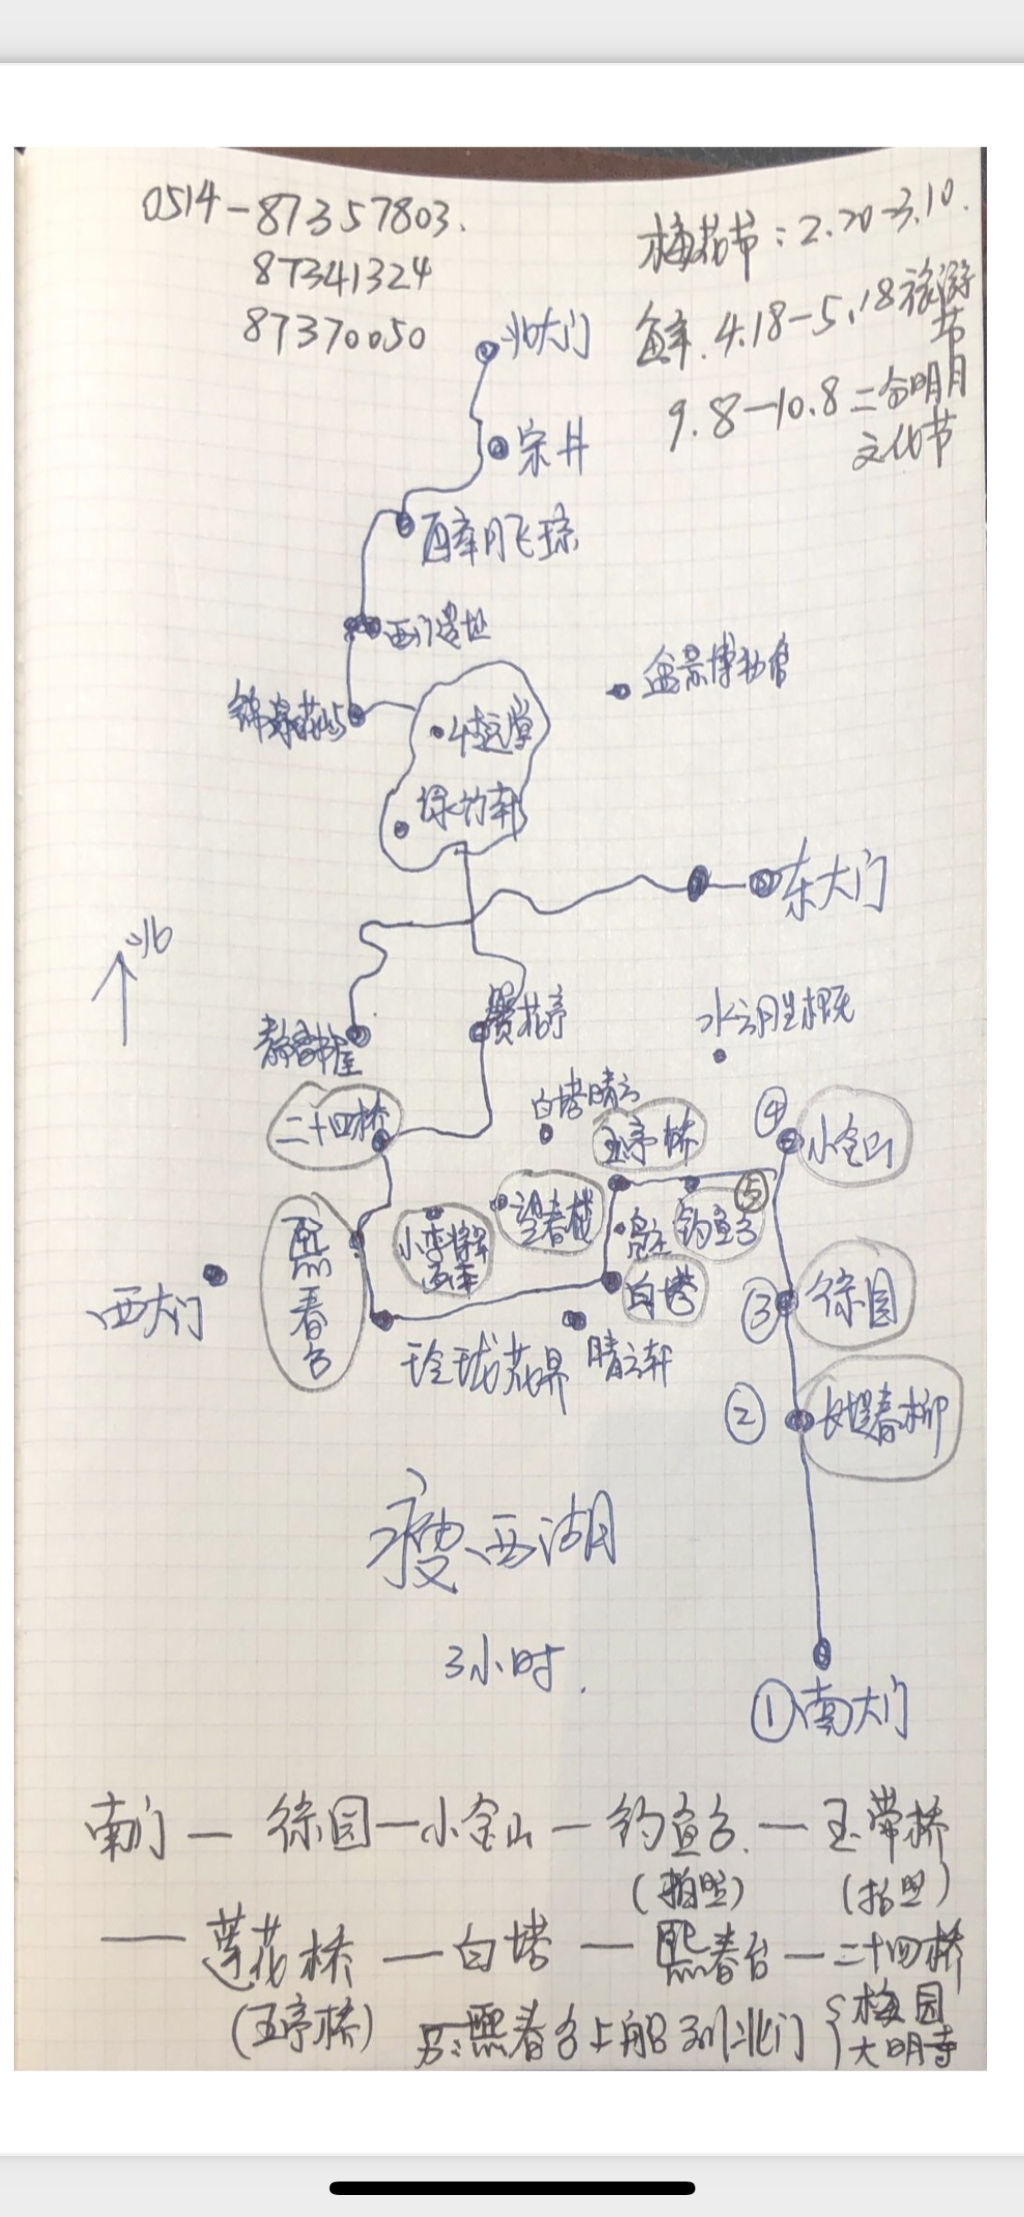 0514-87357803.
87341324
87370050
梅花节：2.20-3.10.
4.18-5.18旅游节
9.8-10.8二分明月
文化节
北大门
宋井
西门遗址
盆景博物馆
锦泉花屿
绿竹轩
东大门
北
静香书屋
水云胜概
二十四桥
白塔晴云
五亭桥
④
小金山
望春楼
⑤
钓鱼台
小李将军
画本
熙春台
白塔
西大门
③
徐园
玲珑花界
晴云轩
②
长堤春柳
瘦西湖
3小时.
①南大门
南门—徐园—小金山—钓鱼台.—玉带桥
(拍照) (拍照)
——莲花桥—白塔—熙春台—二十四桥
(五亭桥) 另:熙春台上船到北门{梅园
大明寺